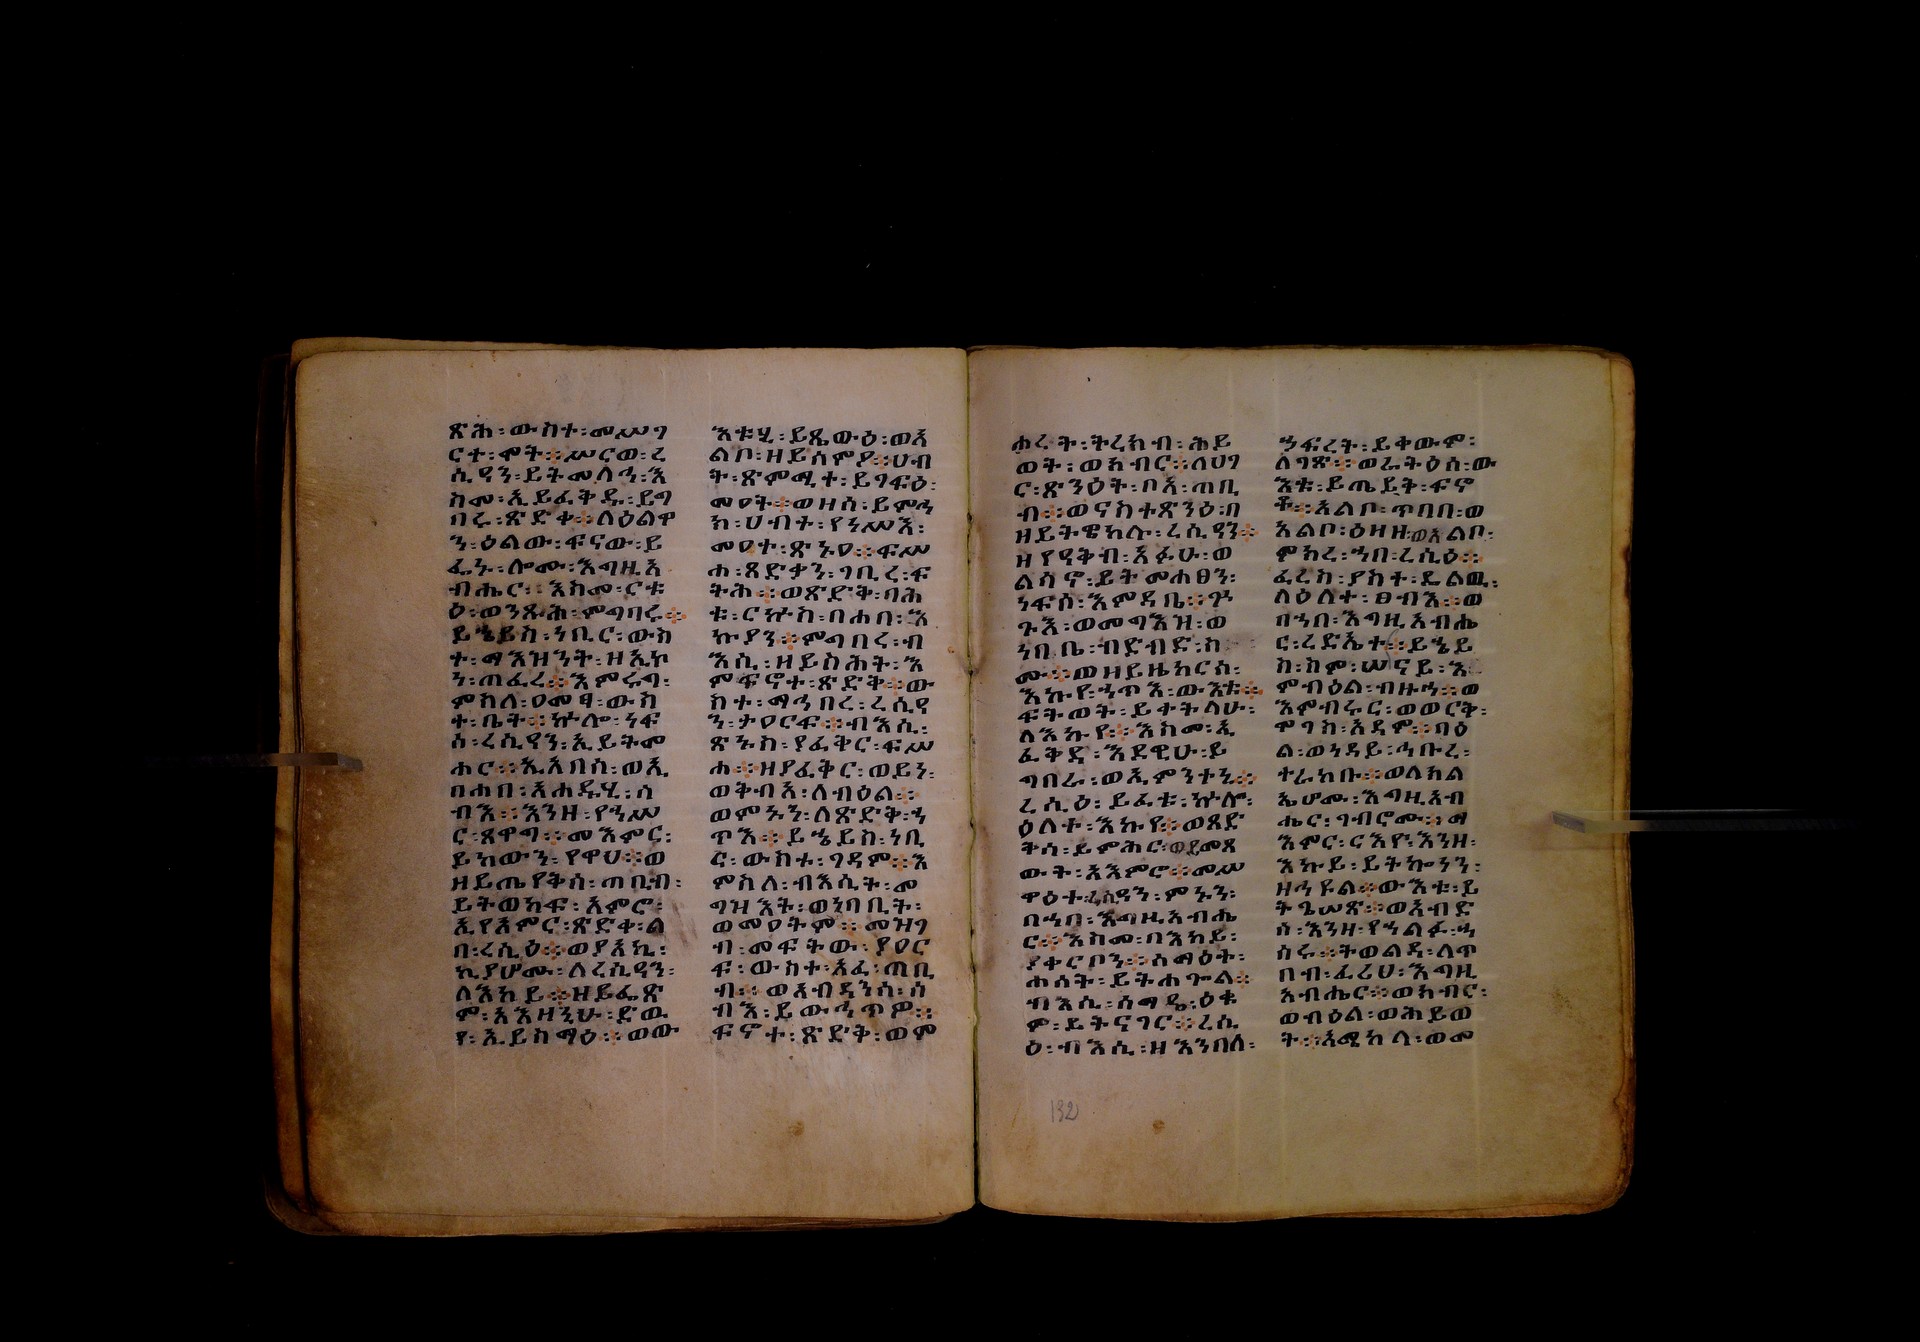 ጽሕ፡ውስተ፡መሥገ
ርተ፡ሞት፨ሥርወ፡ረ
ሲዓን፡ይትመለኅ፡እ
ስመ፡ኢይፈቅዱ፡ይግ
በሩ፡ጽድቀ፨ለዕልዋ
ን፡ዕልው፡ፍናው፡ይ
ፌኑ፡ሎሙ፡እግዚአ
ብሔር፨እስመ፡ርቱ
ዕ፡ወንጹሕ፡ምግባሩ፨
ይኄይስ፡ነቢር፡ውስ
ተ፡ማእዝንት፡ዘኢኮ
ነ፡ጠፈረ፨እምሩግ፡
ምስለ፡ዐመፃ፡ውስ
ተ፡ቤት፨ኵሎ፡ነፍ
ሰ፡ረሲዓን፡ኢይትመ
ሐር፨ኢአበስ፡ወኢ
በሐበ፡አሐዱሂ፡ሰ
ብእ፨እንዘ፡የኀሥ
ር፡ጸዋግ፨መእምር፡
ይከውን፡የዋህ፨ወ
ዘይጤየቅሰ፡ጠቢብ፡
ይትወከፍ፡አምሮ፡
ኢየአምር፡ጽድቀ፡ል
በ፡ረሲዕ፨ወያአኪ፡
ኪያሆሙ፡ለረሲዓን፡
ለእከይ፨ዘይፌጽ
ም፡አእዘኒሁ፡ድዉ
የ፡ኢይሰማዕ፨ወው
እቱሂ፡ይጼውዕ፡ወአ
ልቦ፡ዘይሰምዖ፨ሀብ
ት፡ጽምሚተ፡ይገፍዕ፡
መዐት፨ወዘሰ፡ይምኅ
ክ፡ሀብተ፡የነሥእ፡
መዐተ፡ጽኑዐ፨ፍሥ
ሐ፡ጻድቃን፡ገቢረ፡ፍ
ትሕ፨ወጽድቅ፡ባሕ
ቱ፡ርኩስ፡በሐበ፡እ
ኩያን፨ምግባረ፡ብ
እሲ፡ዘይስሕት፡እ
ምፍኖተ፡ጽድቅ፨ው
ስተ፡ማኅበረ፡ረሲዓ
ን፡ታዐርፍ፨ብእሲ፡
ጽኑስ፡የፈቅር፡ፍሥ
ሐ፨ዘያፈቅር፡ወይን፡
ወቅብአ፡ለብዕል፨
ወምኑን፡ለጽድቅ፡ኃ
ጥእ፨ይኄይስ፡ነቢ
ር፡ውስተ፡ገዳም፨እ
ምስለ፡ብእሲት፡መ
ግዝእት፡ወነባቢት፡
ወመዐትም፨መዝገ
ብ፡መፍትው፡ያዐር
ፍ፡ውስተ፡አፈ፡ጠቢ
ብ፨ወእብዳንሰ፡ሰ
ብእ፡ይውኅጥዎ፨
ፍኖተ፡ጽድቅ፡ወም
ሐረት፡ትረክብ፡ሕይ
ወት፡ወክብር፨ለሀገ
ር፡ጽንዕት፡ቦአ፡ጠቢ
ብ፨ወናስተጽንዕ፡በ
ዘይትዌከሉ፡ረሲዓን፨
ዘየዓቅብ፡አፉሁ፡ወ
ልሳኖ፡ይትመሐፀን፡
ነፍሰ፡እምዳቤ፨ም
ጉእ፡ወመግእዝ፡ወ
ነበቤ፡ብድብድ፡ስ
ሙ፨ወዘይዜከርሰ፡
እኩየ፡ኃጥእ፡ውእቱ፨
ፍትወት፡ይቀትላሁ፡
ለእኩየ፨እስመ፡ኢ
ፈቅዳ፡እደዊሁ፡ይ
ግበራ፡ወኢምንተኒ፨
ረሲዕ፡ይፈቱ፡ኵሎ፡
ዕለተ፡እኩየ፨ወጻድ
ቅሰ፡ይምሕር፡ወይመጸ
ውት፡አእምሮ፨መሥ
ዋዕተ፡ረሲዓን፡ምኑን፡
በኀበ፡እግዚአብሔ
ር፨እስመ፡በእከይ፡
ያቀርቦን፨ስማዕት፡
ሐሰት፡ይትሐጐል፨
ብእሲ፡ሰማዒ፡ዕቁ
ም፡ይትናገር፨ረሲ
ዕ፡ብእሲ፡ዘእንበለ፡
ኃፍረት፡ይቀውም፡
ለገጽ፨ወራትዕሰ፡ው
እቱ፡ይጤይቅ፡ፍኖ
ቶ፨አልቦ፡ጥበበ፡ወ
አልቦ፡ዕዘዘ፡ወአልቦ፡
ምክረ፡ኀበ፡ረሲዕ፨
ፈረስ፡ያስተዴልዉ፡
ለዕለተ፡ፀብእ፨ወ
በኀበ፡እግዚአብሔ
ር፡ረድኤተ፨ይኄይ
ስ፡ስም፡ሠናይ፡እ
ምብዕል፡ብዙኅ፨ወ
እምብሩር፡ወወርቅ፡
ሞገስ፡አዳም፨ባዕ
ል፡ወነዳይ፡ኅቡረ፡
ተራከቡ፨ወለክል
ኤሆሙ፡እግዚአብ
ሔር፡ገብሮሙ፨ማ
እምር፡ርእየ፡እንዘ፡
እኩይ፡ይትኴነን፡
ዘኀይል፨ውእቱ፡ይ
ትጌሠጽ፨ወአብድ
ሰ፡እንዘ፡የኀልፉ፡ኃ
ሰሩ፨ትወልዳ፡ለጥ
በብ፡ፈሪሀ፡እግዚ
አብሔር፨ወክብር፡
ወብዕል፡ወሕይወ
ት፨አሜከላ፡ወመ
132